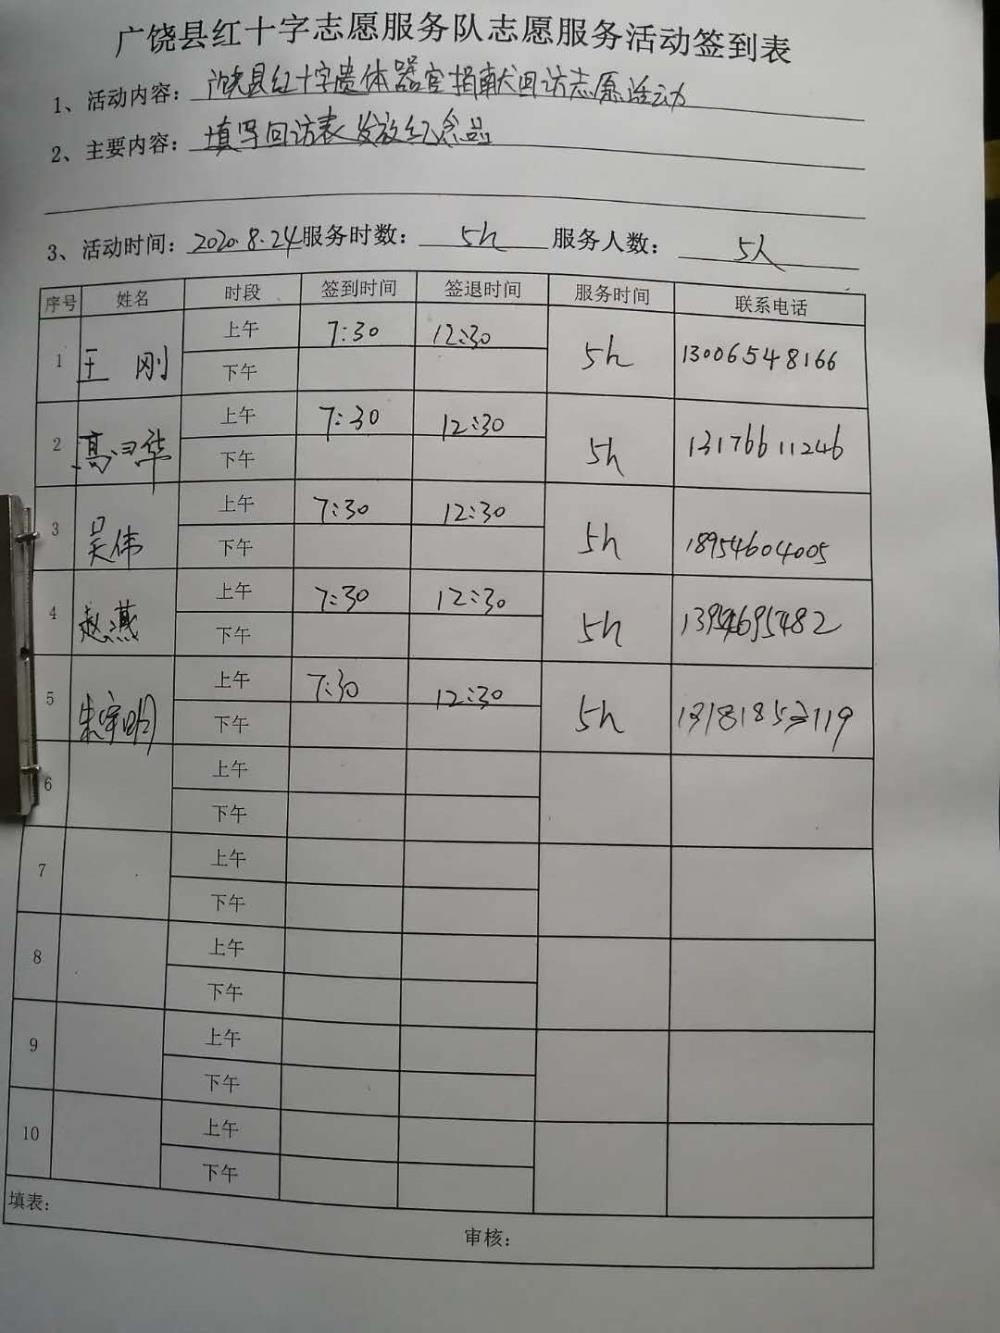 广饶县红十字志愿服务队志愿服务活动签到表
1、活动内容：广饶县红十字遗体器官捐献回访志愿活动
2、主要内容：填写回访表发放纪念品
3、活动时间：2020.8.24 服务时数：5h 服务人数：5人
序号 姓名 时段 签到时间 签退时间 服务时间 联系电话
1 王刚 上午 7:30 12:30 5h 13006548166
下午
2 高习华 上午 7:30 12:30 5h 13176611246
下午
3 吴伟 上午 7:30 12:30 5h 18954604005
下午
4 赵燕 上午 7:30 12:30 5h 13954695482
下午
5 朱宇明 上午 7:30 12:30 5h
下午
6 上午
下午
7 上午
下午
8 上午
下午
9 上午
下午
10 上午
下午
填表：
审核：